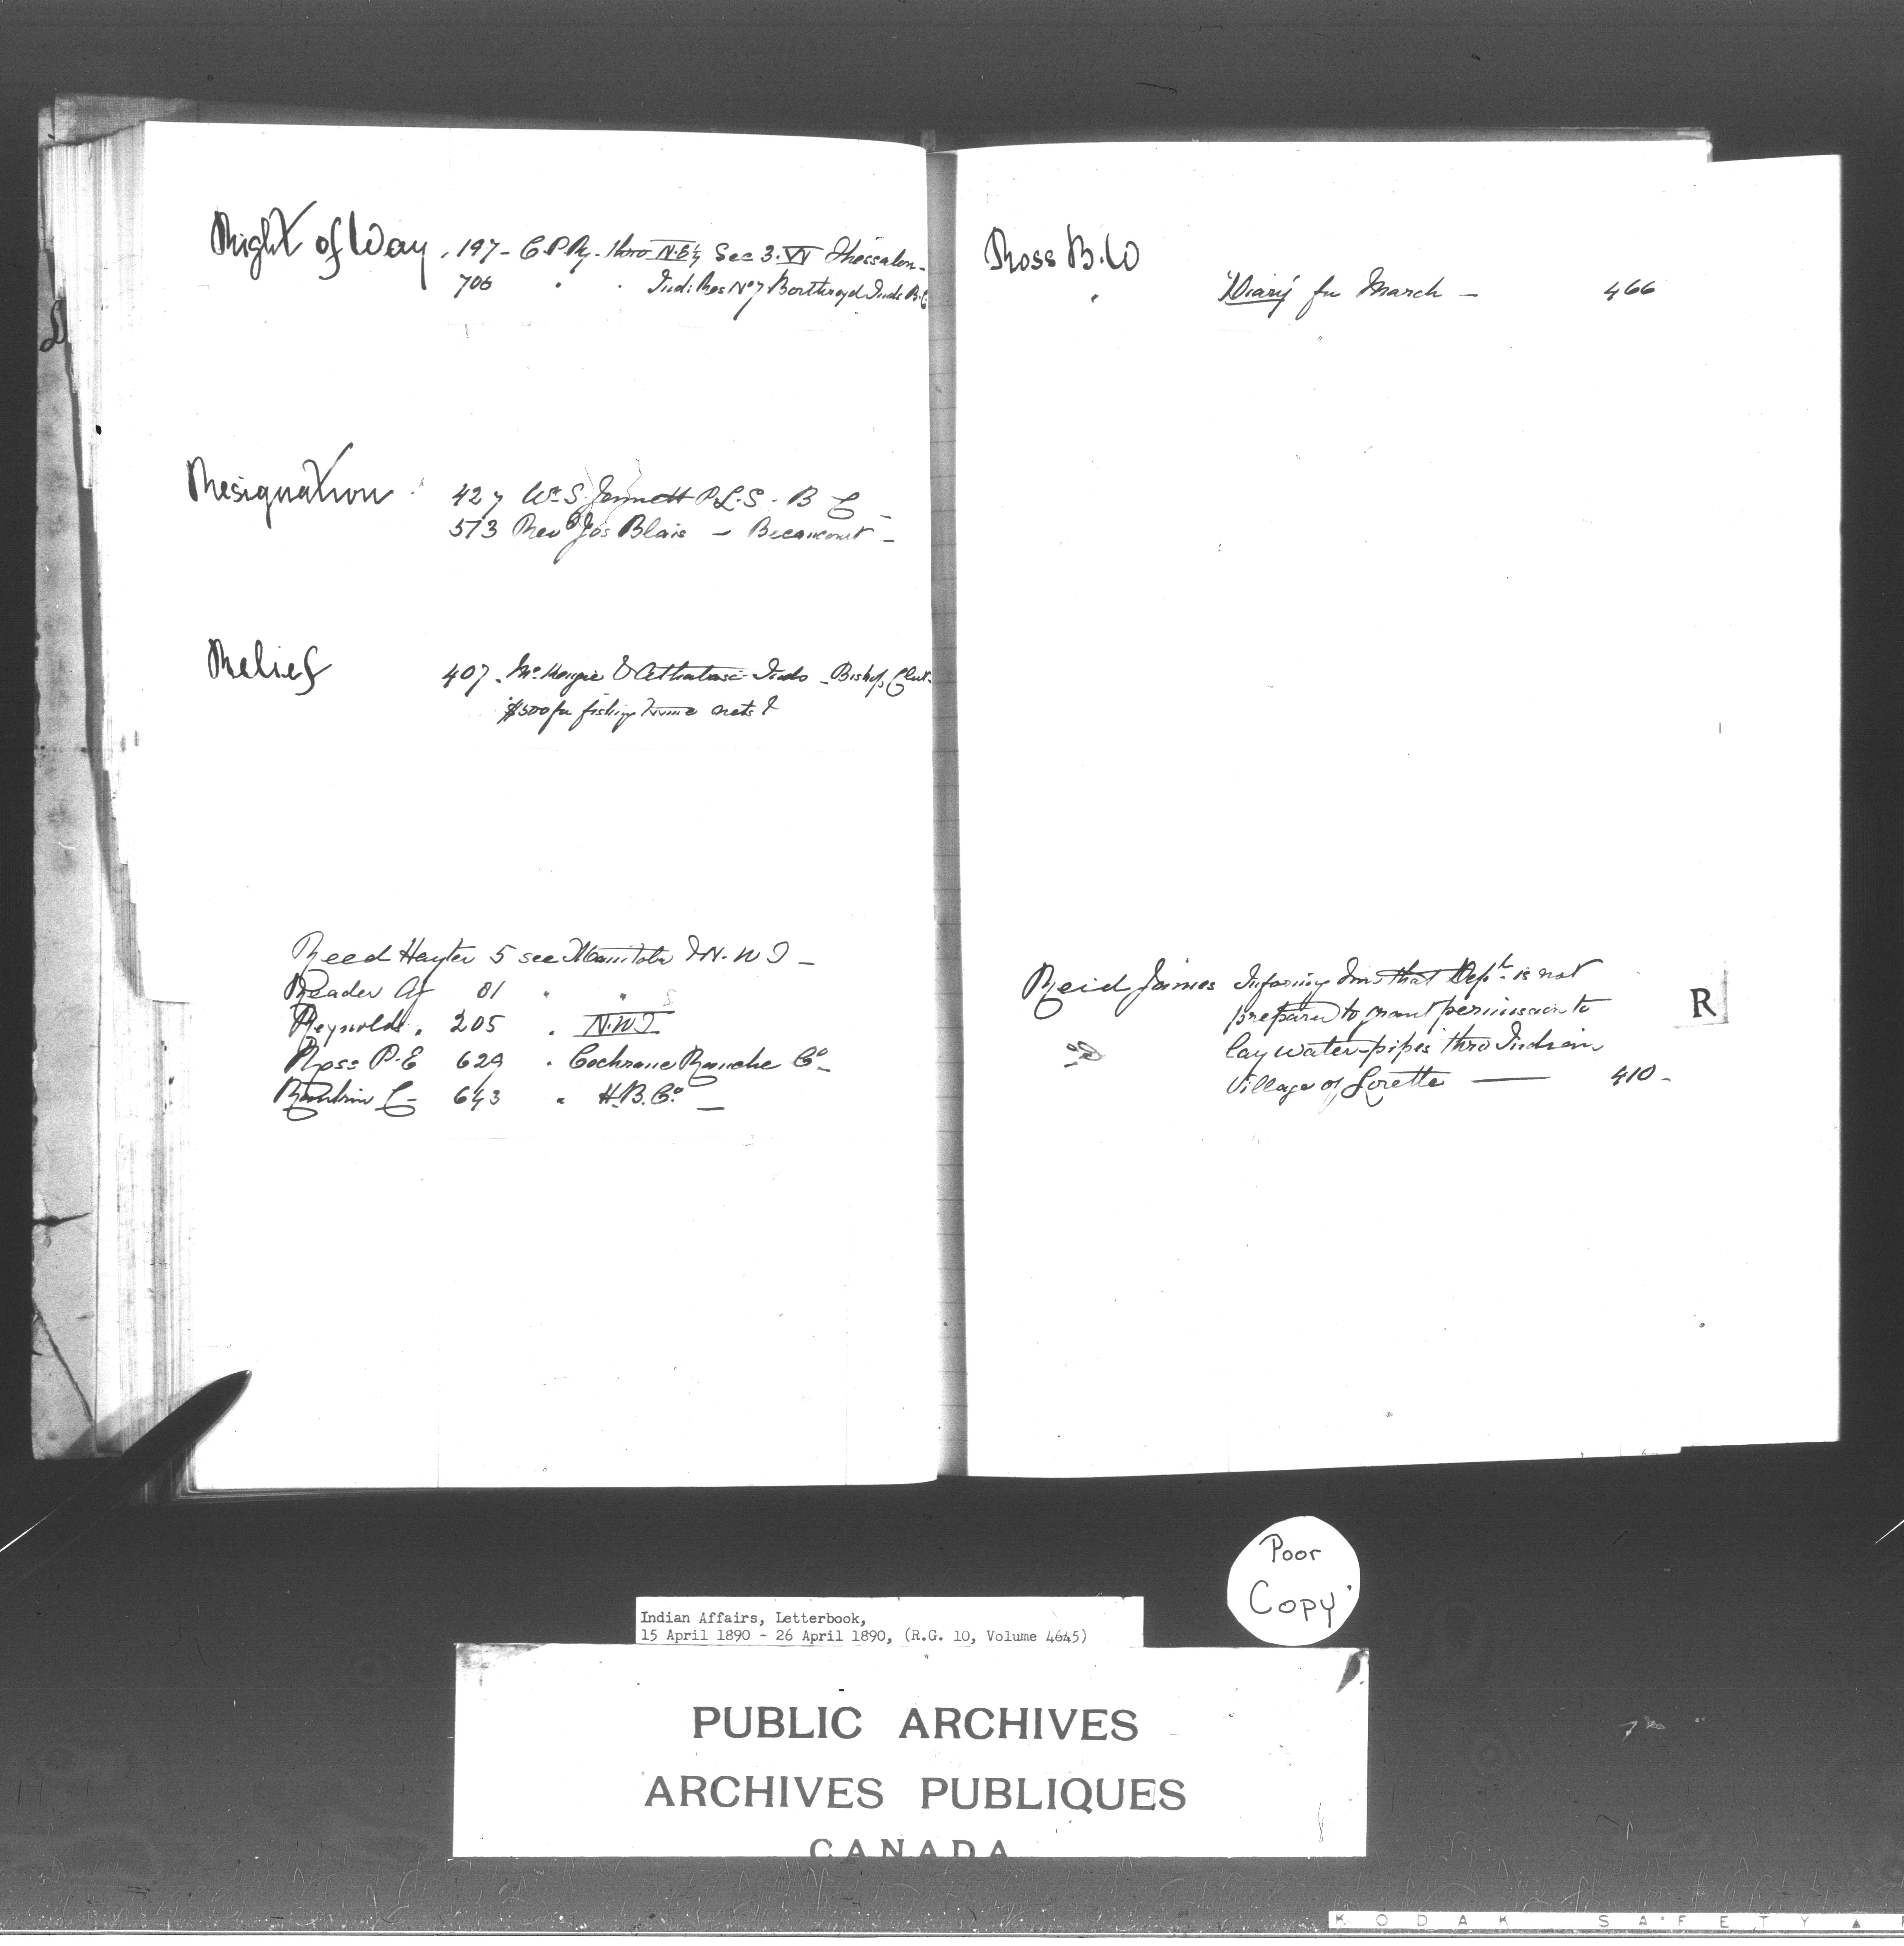 Right of Way. 197 - C.P.Ry. thro N.E¼ Sec 3. VI Thessalon -
706 " " Ind: Res No 7 Boothroyd Inds B.C.
Resignation. 427 Wm S. Jemmett P.L.S. - B C -
573 Revd Jos Blais - Becancourt -
Relief 407. McKenzie & Athabasca Inds - Bishop Clut.
$500 for fishing twine nets &
Reed Hayter 5 see Manitoba & N.W.T -
Reader 81 " "
Reynolds. 205 " N.W.T
Ross P.E 629 " Cochrane Ranche Co -
Rankin C - 643 " H.B.Co. -
Ross B.W
" Diary for March - 466
Reid James Informing him that Dept. is not
prepared to grant permission to
lay water-pipes thro Indian
Village of Lorette — 410 -
R
Poor
Copy
Indian Affairs, Letterbook,
15 April 1890 - 26 April 1890, (R.G. 10, Volume 4645)
PUBLIC ARCHIVES
ARCHIVES PUBLIQUES
CANADA
KODAK SAFETY